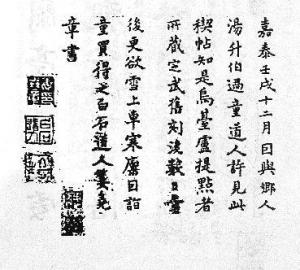 嘉泰壬戌十二月囙與鄉人
湯升伯過童道人許見此
禊帖知是烏臺盧提點者
所藏定武舊刻後數日雪
後更欲雪上車寒廩囙詣
童買得之白石道人姜堯
章書